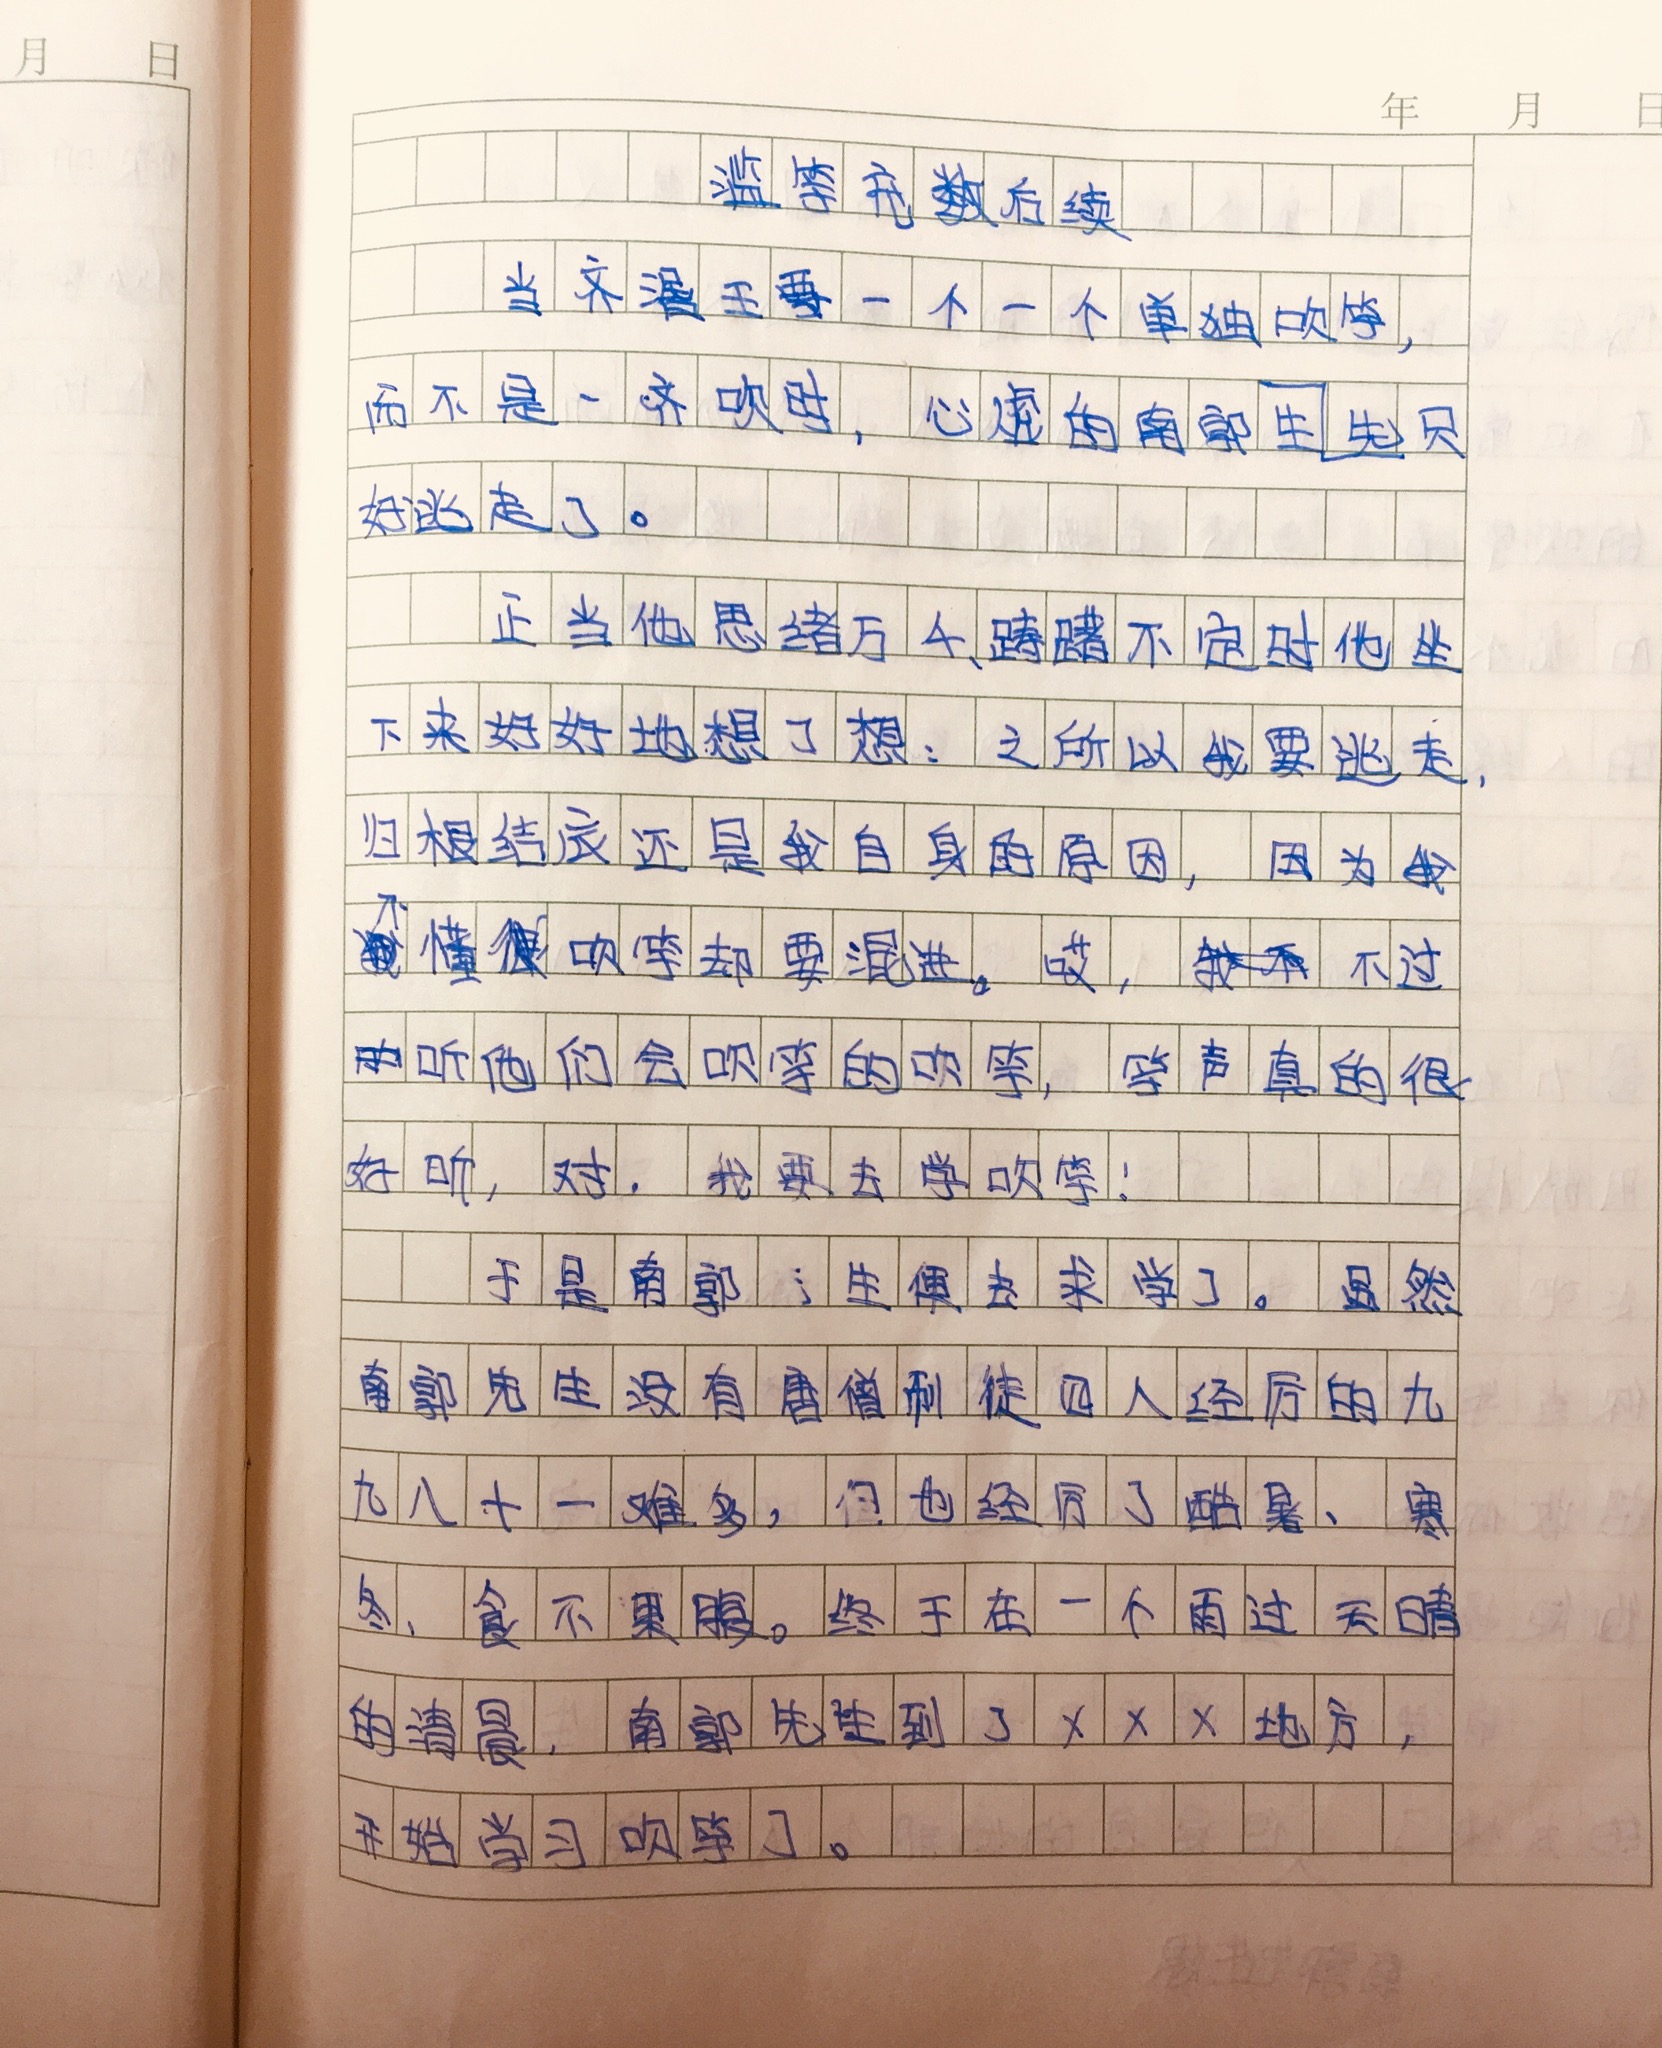 月 日
年 月 日
滥竽充数后续
当齐湣王要一个一个单独吹竽，
而不是一齐吹时，心虚的南郭生先只
好逃走了。
正当他思绪万千、踌躇不定时他坐
下来好好地想了想：之所以我要逃走，
归根结底还是我自身的原因，因为我
不懂吹竽却要混进。哎，不过
听他们会吹竽的吹竽，竽声真的很
好听，对，我要去学吹竽！
于是南郭先生便去求学了。虽然
南郭先生没有唐僧师徒四人经历的九
九八十一难多，但也经历了酷暑、寒
冬、食不果腹。终于在一个雨过天晴
的清晨，南郭先生到了XXX地方，
开始学习吹竽了。